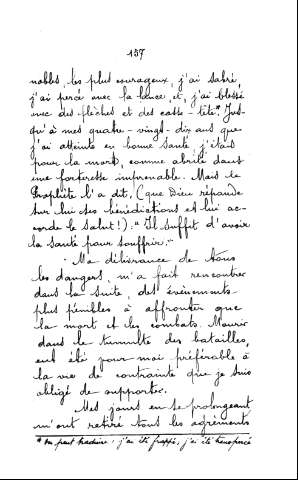 157
nobles, les plus courageux, j'ai sabré,
j'ai percé avec la lance et, j'ai blessé
avec des flèches et des casse-tête*. Jus-
qu'à mes quatre-vingt-dix ans que
j'ai atteints en bonne santé, j'étais
pour la mort, comme abrité dans
une forteresse imprenable. Mais le
Prophète l'a dit, (que Dieu répande
sur lui ses bénédictions et lui ac-
corde le salut!). "Il suffit d'avoir
la santé pour souffrir."
Ma délivrance de tous
les dangers, m'a fait rencontrer
dans la suite, des évènements
plus pénibles à affronter que
la mort et les combats. Mourir
dans le tumulte des batailles,
eut été pour moi préférable à
la vie de contrainte que je suis
obligé de supporter.
Mes jours en se prolongeant
m'ont retiré tous les agréments
* On peut traduire: j'ai été frappé, j'ai été transpercé